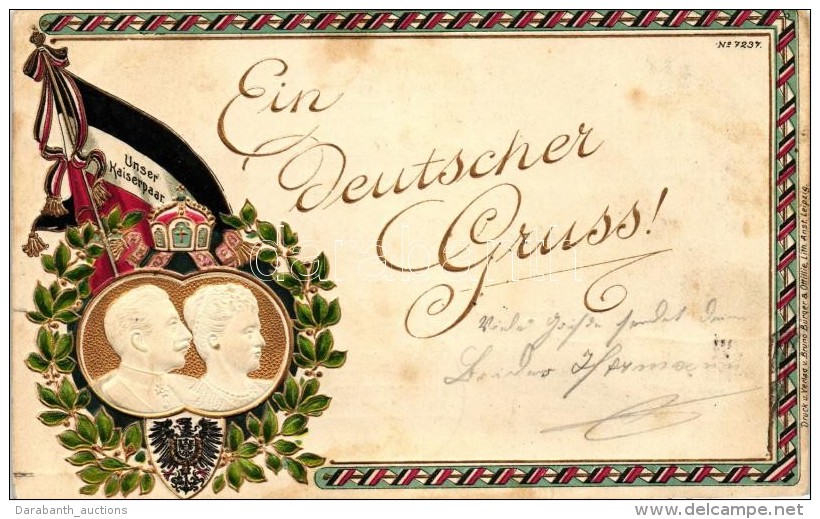 No 7237.
Ein
Deutscher
Gruss!
Unser
Kaiserpaar.
Viele Grüße sendet dein
Bruder Hermann
Druck u. Verlag v. Bruno Bürger & Ottillie, Lith. Anst. Leipzig.
darabanth
Darabanth_auctions
delcampe.net